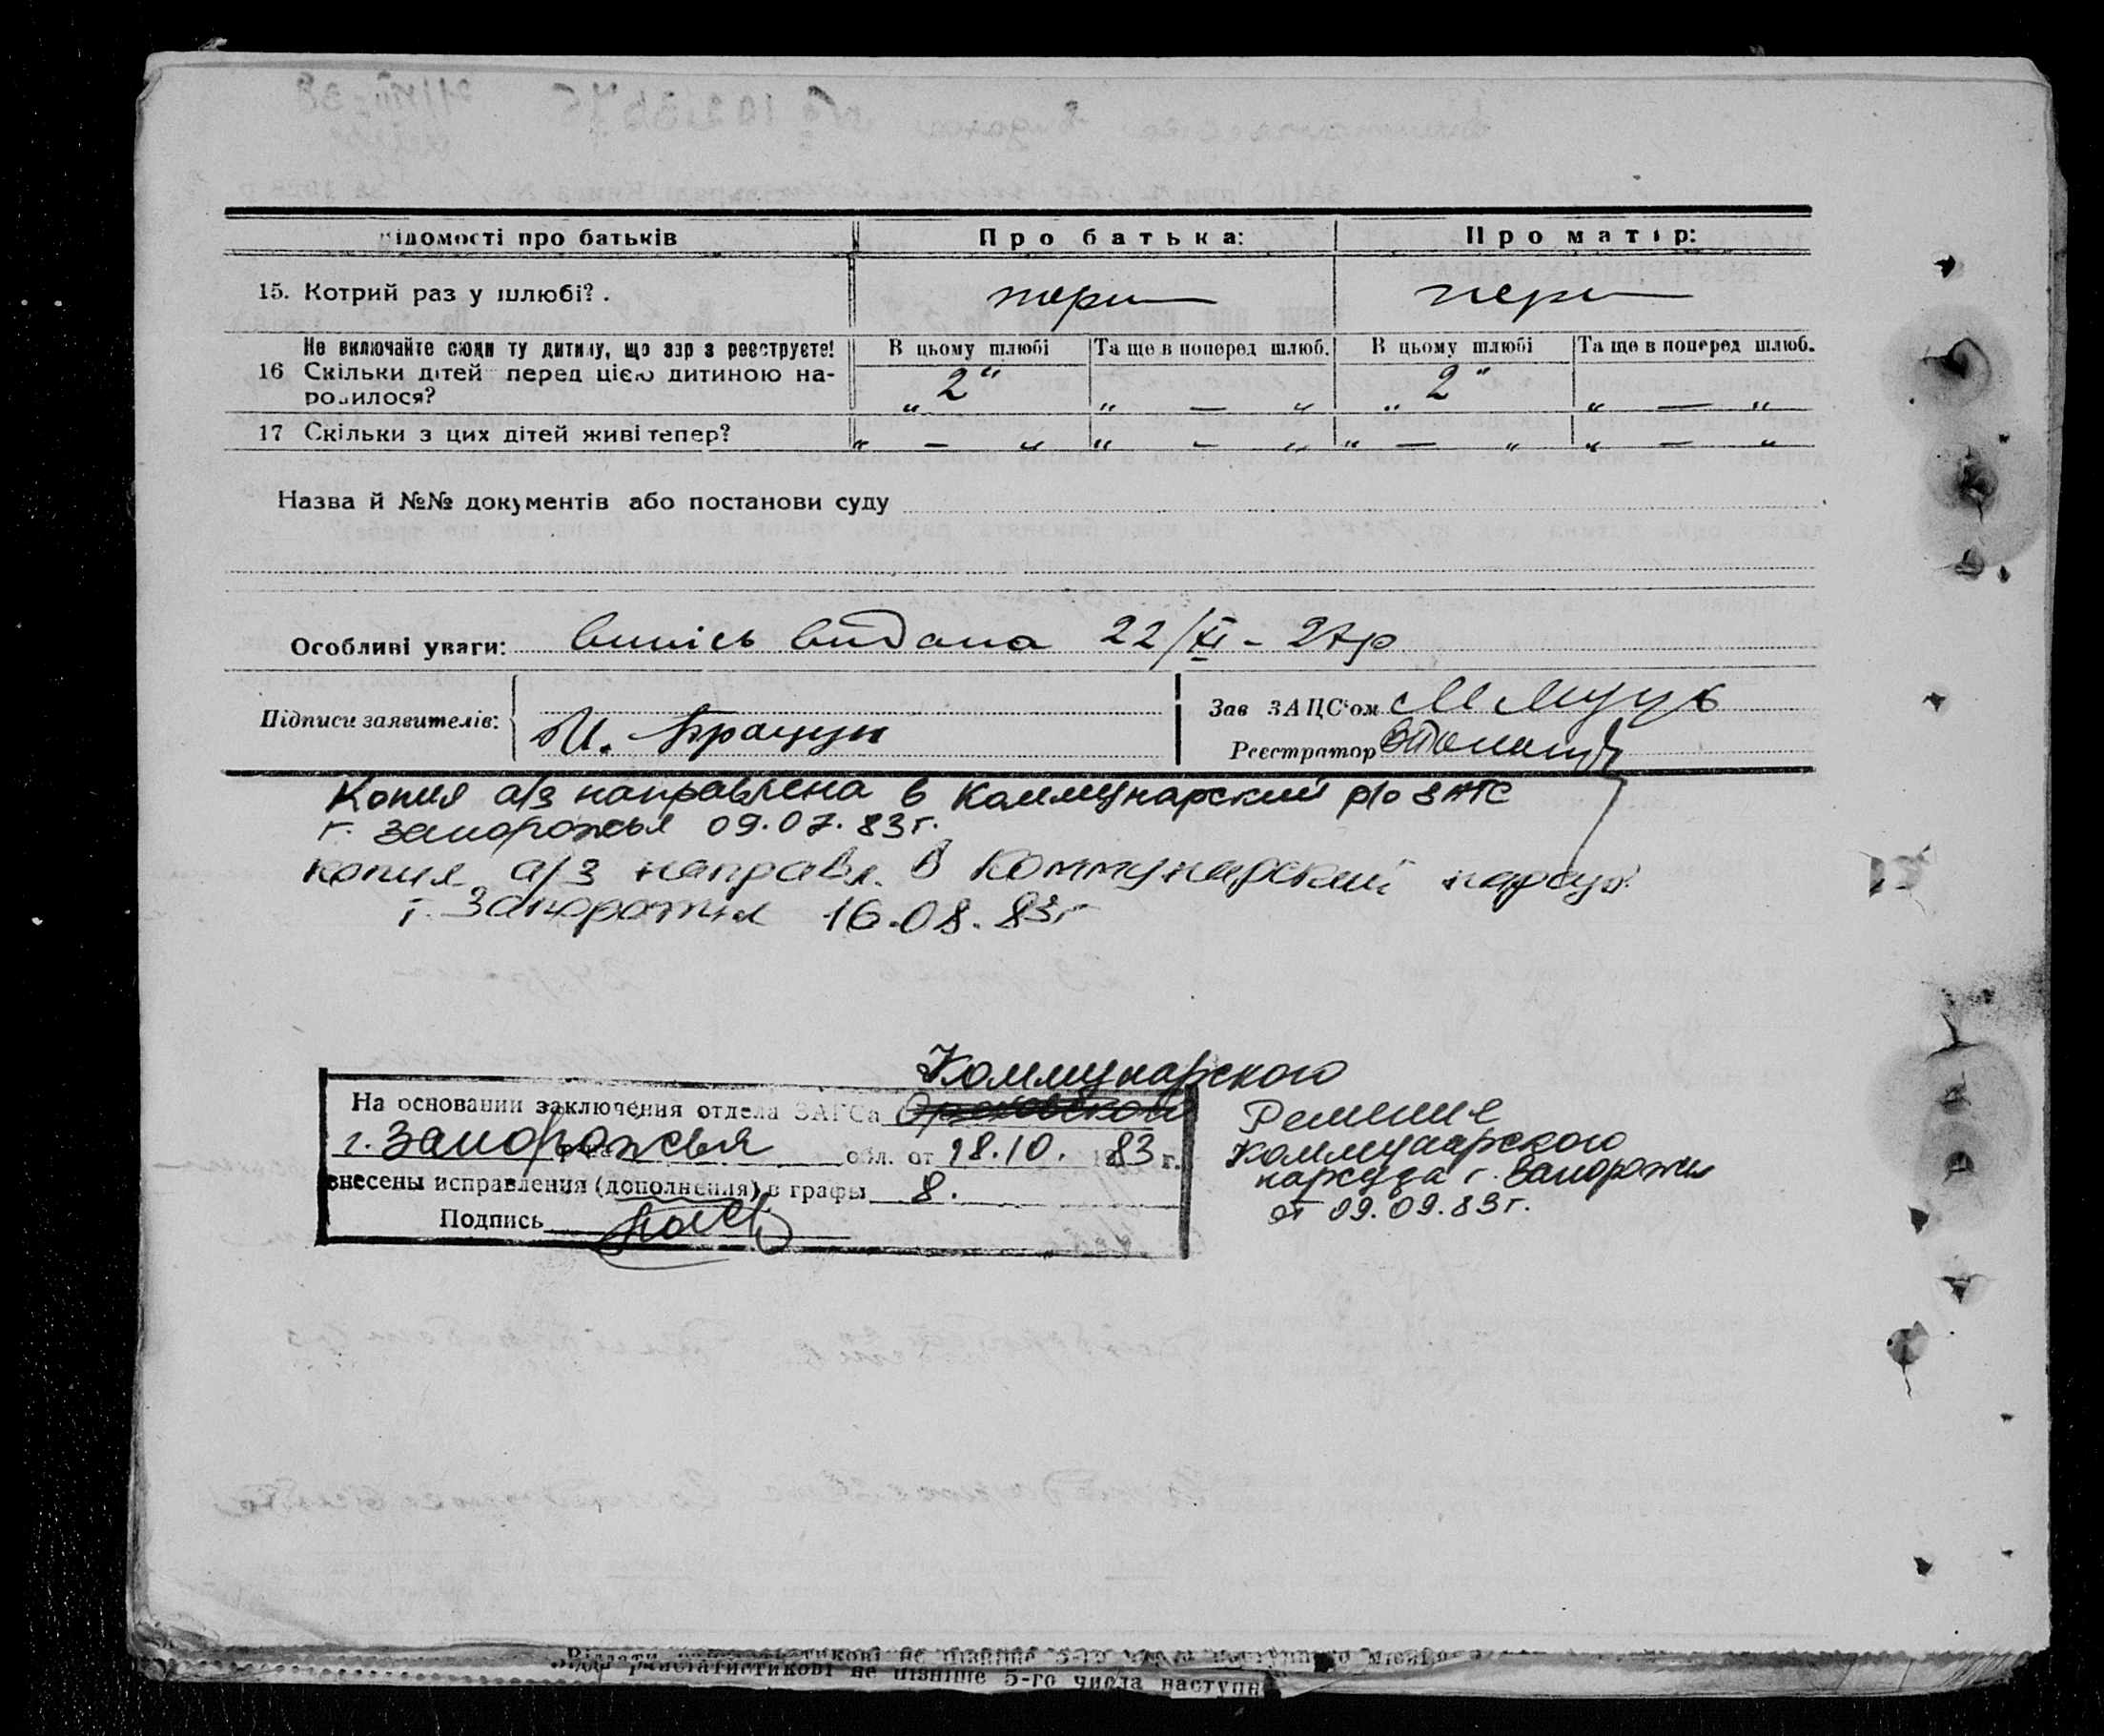 ідомості про батьків Про батька: Про матір:
15. Котрий раз у шлюбі? . перш перш
Не включайте сюди ту дитину, що зараз реєструєте! В цьому шлюбі Та ще в поперед шлюб. В цьому шлюбі Та ще в поперед шлюб.
16 Скільки дітей перед цією дитиною на-
родилося? „2“ „ — „ „2“ „ — „
17 Скільки з цих дітей живі тепер? „ — „ „ — „ „ — „ „ — „
Назва й №№ документів або постанови суду
Особливі уваги: Випісь видана 22/XI - 27р
Підписи заявителів: И. Брацун
Зав ЗАЦС'ом
Реєстратор
Копия а/з направлена в Коммунарский р/о ЗАГС
г. Запорожья 09.07.83г.
копия а/з направл. в Коммунарский нарсуд
г. Запорожья 16.08.83г
Коммунарского
На основании заключения отдела ЗАГСа Ореховского
г. Запорожья обл. от 18.10. 1983 г.
внесены исправления (дополнения) в графы 8.
Подпись
Решение
Коммунарского
нарсуда г. Запорожья
от 09.09.83г.
не пізніше 5-го
не пізніше 5-го числа наступн